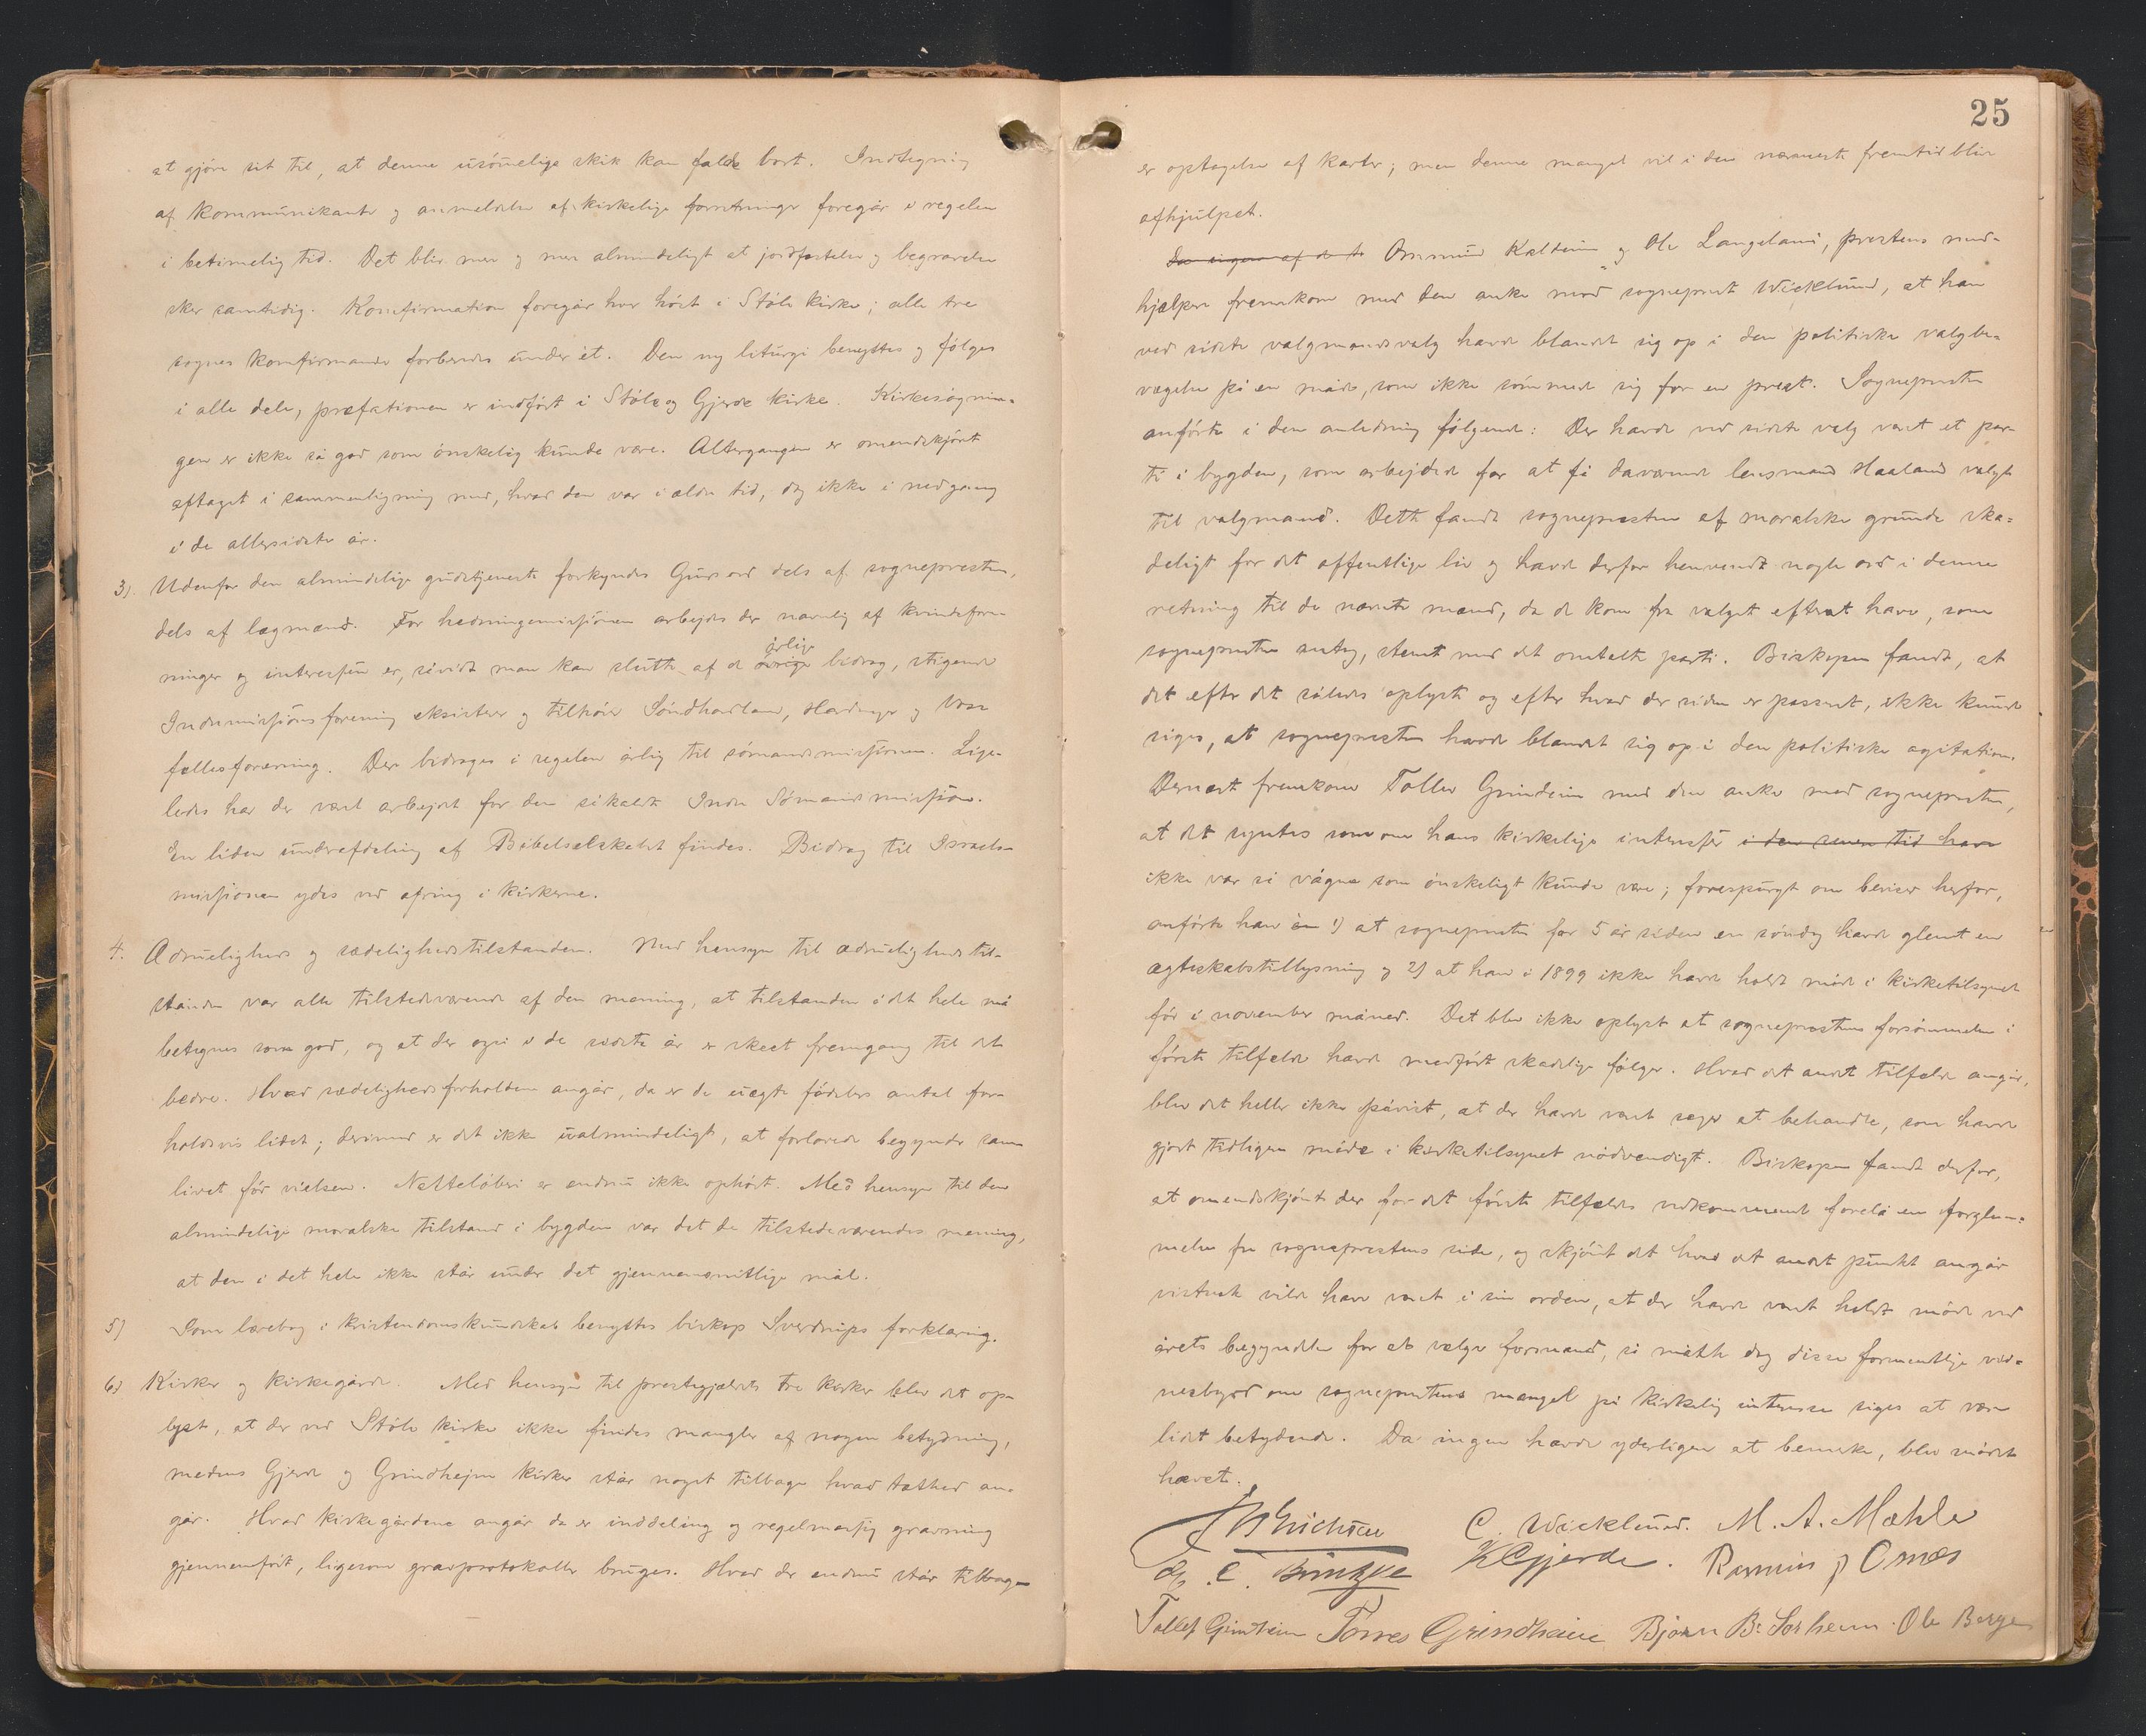 at gjöre sit til, at denne usömmelige skik kan falde bort. Indtegning
af kommunikanter og anmeldelse af kirkelige forretninger foregår i regelen
i betimelig tid. Det blir mer og mer almindeligt at jordfæstelse og begravelse
sker samtidig. Konfirmation foregår hver höst i Støle kirke; alle tre
sognes konfirmander forberedes under ét. Den ny liturgi benyttes og fölges
i alle dele, præfationen er indfört i Støle og Gjerde kirke. Kirkesögnin-
gen er ikke så god som önskelig kunde være. Altergangen er omendskjönt
aftaget i sammenligning med, hvad den var i ældre tid, dog ikke i nedgang
i de allersidste år.
3). Udenfor den almindelige gudstjeneste forkyndes Guds ord dels af sognepresten,
dels af lægmænd. For hedningemissionen arbejdes der navnlig af kvindefore-
ninger og interessen er, såvidt man kan slutte af de övrige årlige bidrag, stigende
Indremissionsforening eksisterer og tilhörer Söndhordland, Hardanger og Voss
fællesforening. Der bidrages i regelen årlig til sömandsmissionen. Lige-
ledes har der været arbejdet for den såkaldte Indre Sömandsmission.
En liden underafdeling af Bibelselskabet findes. Bidrag til Israels-
missionen ydes ved ofring i kirkerne.
4. Ædruelighed og sædelighedstilstanden. Med hensyn til ædruelighedstil-
standen var alle tilstedeværende af den mening, at tilstanden i det hele må
betegnes som god, og at der også i de sidste år er skeet fremgang til det
bedre. Hvad sædelighedsforholdene angår, da er de uægte födslers antal for-
holdsvis lidet; derimod er det ikke ualmindeligt, at forlovede begynder sam-
livet för vielsen. Natteløberi er endnu ikke ophört. Med hensyn til den
almindelige moralske tilstand i bygden var det de tilstedeværendes mening,
at den i det hele ikke står under det gjennemsnitlige mål.
5) Som lærebog i kristendomskundskab benyttes biskop Sverdrups forklaring.
6) Kirker og kirkegårde. Med hensyn til prestegjældets tre kirker blev det op-
lyst, at der ved Støle kirke ikke findes mangler af nogen betydning,
medens Gjerde og Grindhejm kirker står noget tilbage hvad tæthed an-
går. Hvad kirkegårdene angår da er inddeling og regelmæssig gravning
gjennemfört, ligesom gravprotokoller bruges. Hvad der endnu står tilbage
25
er optagelse af karter; men denne mangel vil i den nærmeste fremtid blive
afhjulpet.
Ommund Kaldeim og Ole Langeland, prestens med-
hjælpere fremkom med den anke mod sogneprest Wicklund, at han
ved sidste valgmandsvalg havde blandet sig op i den politiske valgbe-
vægelse på en måde, som ikke sömmede sig for en prest. Sognepresten
anförte i den anledning fölgende: Der havde ved sidste valg været et par-
ti i bygden, som arbejdede for at få daværende lensmand Haaland valgt
til valgmand. Dette fandt sognepresten af moralske grunde ska-
deligt for det offentlige liv og havde derfor henvendt nogle ord i denne
retning til de nævnte mænd, da de kom fra valget efterat have, som
sognepresten antog, stemt med det omtalte parti. Biskopen fandt, at
det efter det således oplyste og efter hvad der siden er passeret, ikke kunde
siges, at sognepresten havde blandet sig op i den politiske agitation.
Dernæst fremkom Tollev Grindeim med den anke mod sognepresten,
at det syntes som om hans kirkelige interesser i den senere tid have
ikke var så vågne som önskeligt kunde være; forespurgt om beviser herfor,
anförte han 1) at sognepresten for 5 år siden en söndag havde glemt en
ægteskabstillysning og 2) at han i 1899 ikke havde holdt möde i kirketilsynet
för i november måned. Det blev ikke oplyst at sogneprestens forsömmelse i
förste tilfælde havde medfört skadelige fölger. Hvad det andet tilfælde angår,
blev det heller ikke påvist, at der havde været sager at behandle, som havde
gjort tidligere möde i kirketilsynet nödvendigt. Biskopen fandt derfor,
at omendskjönt der for det förste tilfældes vedkommende forelå en forglem-
melse fra sogneprestens side, og skjönt det hvad det andet punkt angår
vistnok vilde have været i sin orden, at der havde været holdt möde ved
årets begyndelse for at vælge formand, så måtte dog disse formentlige vid-
nesbyrd om sogneprestens mangel på kirkelig interesse siges at være
lidet betydende. Da ingen havde yderligere at bemerke, blev mödet
hævet.
C. Wicklund. M. A. Mæhle
K Gjerde. Rasmus J Omes
Tollef Grindeim Tørres Grindheim Bjørn B. Sørheim. Ole Berge